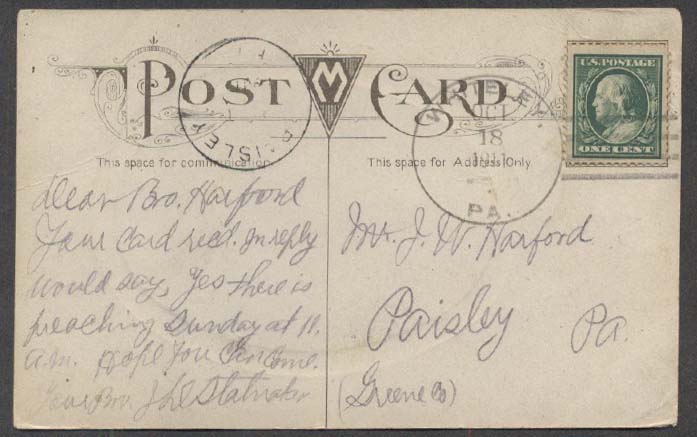 POST CARD
M
PAISLEY
OCT
18
1911
PA.
U.S. POSTAGE
ONE CENT
This space for communication
This space for Address Only.
Dear Bro. Harford
Your Card recd. In reply
would say, Yes there is
preaching Sunday at 11.
A.M. Hope you can come.
Your Bro J L
Mr. J. W. Harford
Paisley Pa.
(Greene Co)